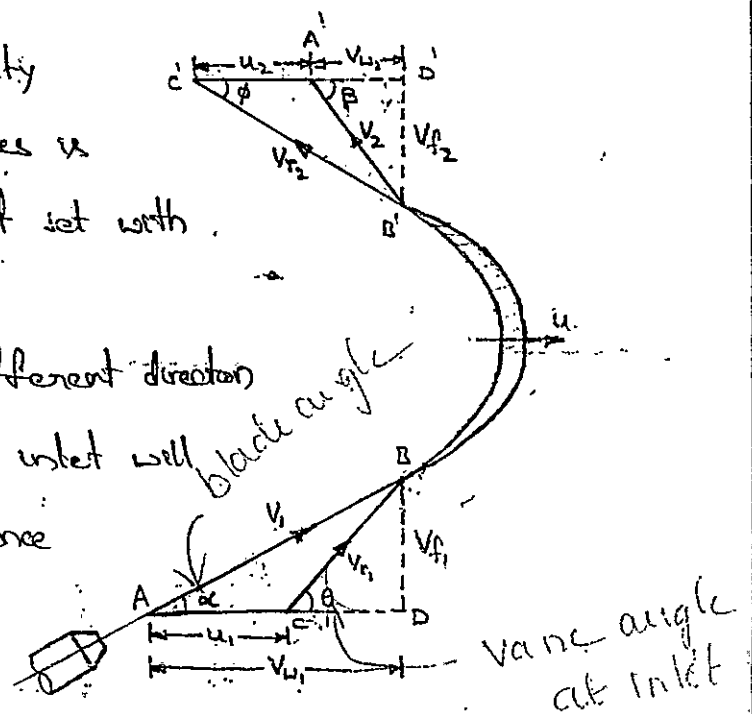 ity
es is
t jet with
fferent direction
inlet will
nce
A'
u₂
Vw₂
C'
D'
φ
β
V₂
Vf₂
Vr₂
B'
u
blade angle
B
V₁
Vr₁
Vf₁
A
α
C
θ
D
u₁
Vw₁
vane angle
at inlet